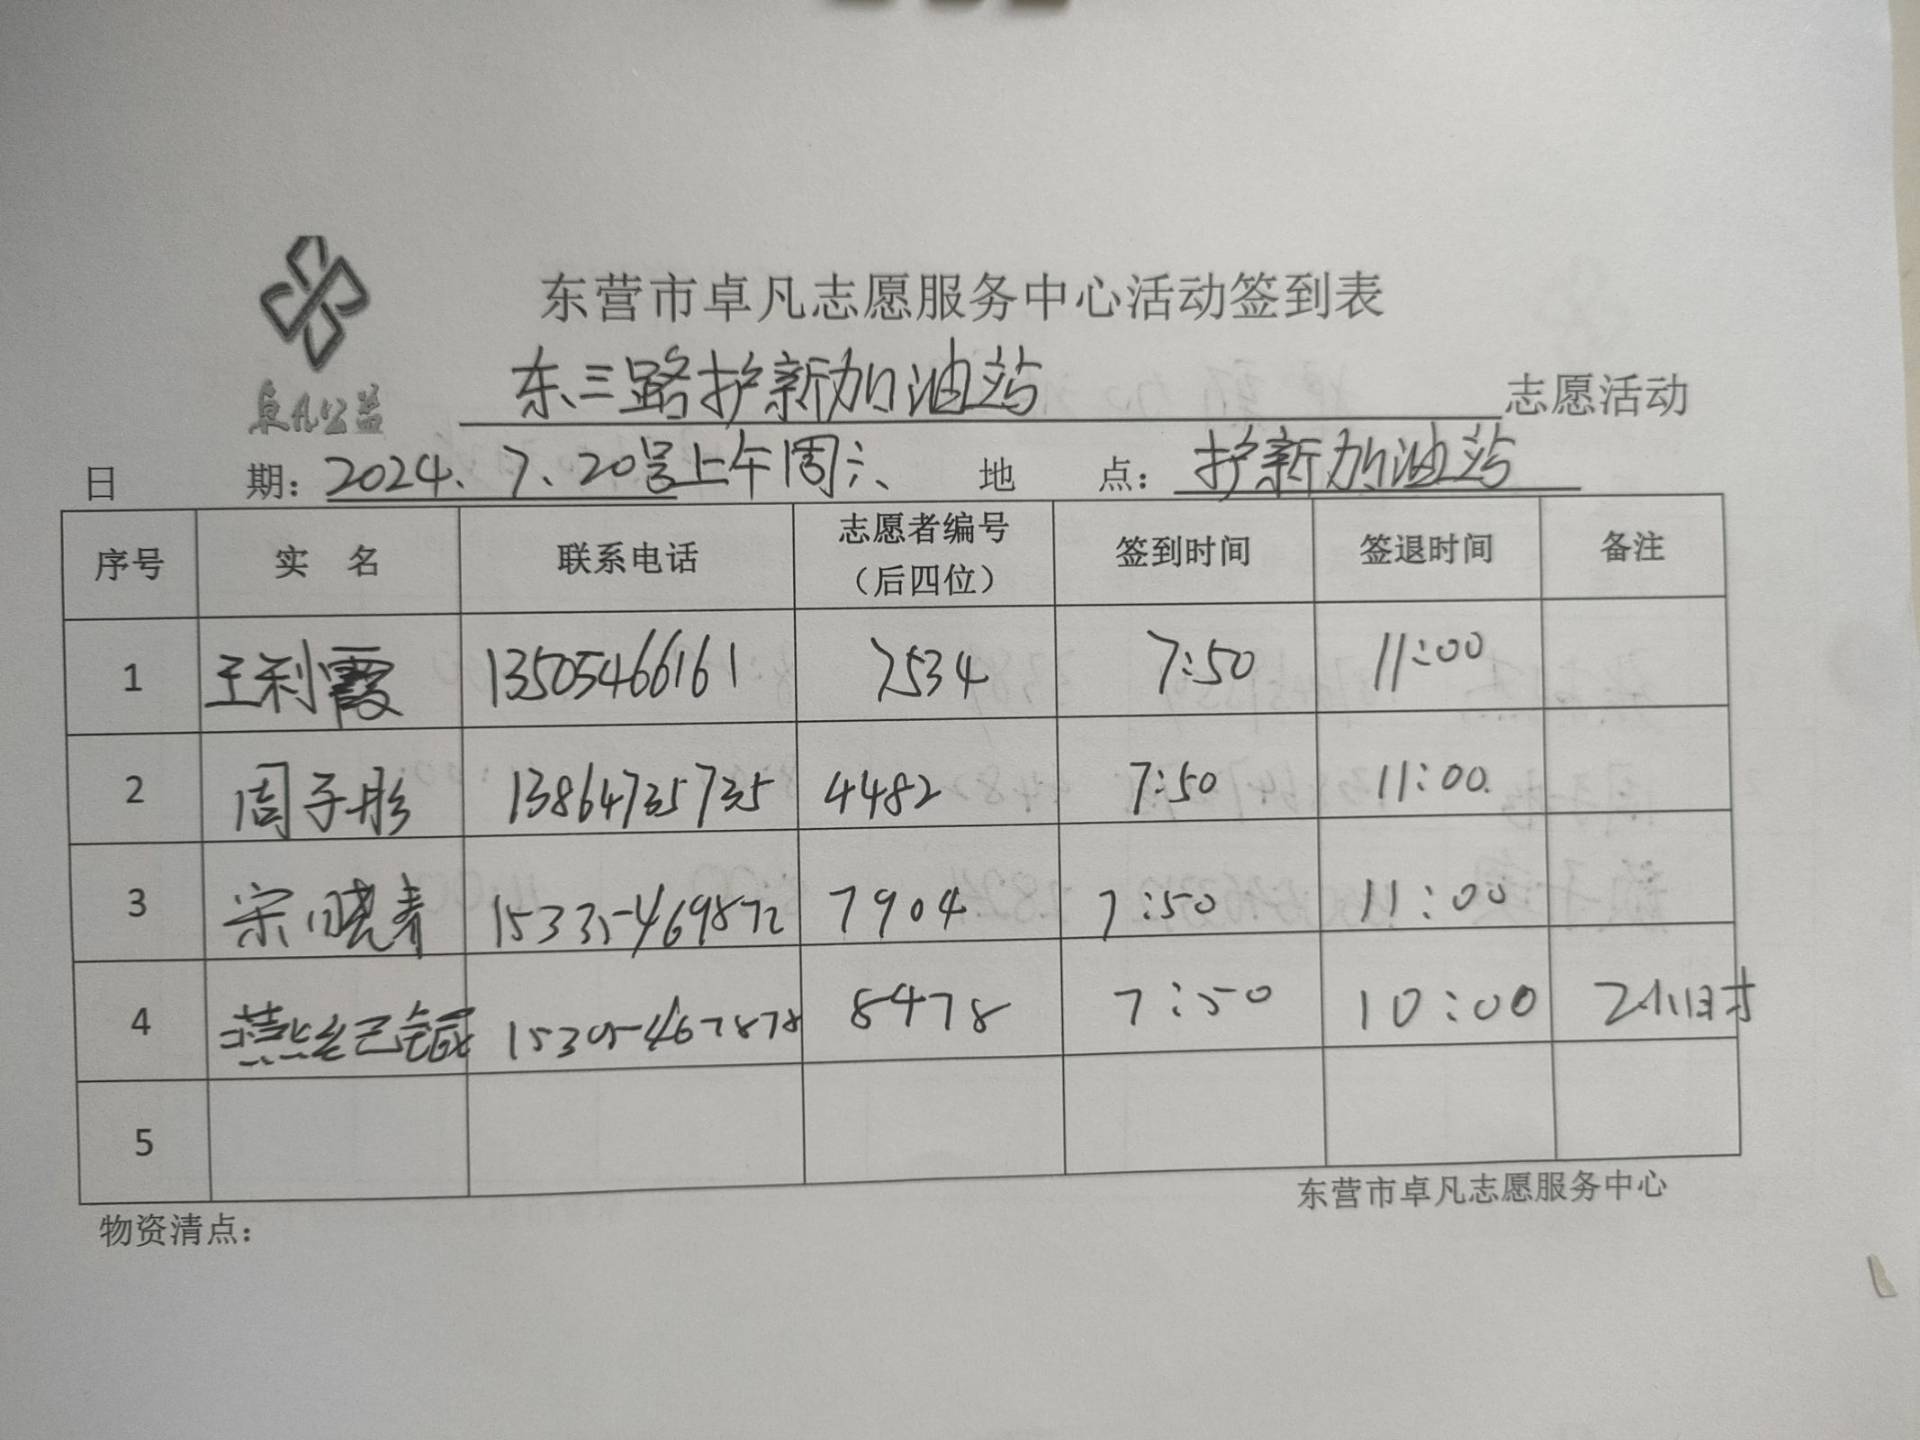 东营市卓凡志愿服务中心活动签到表
卓凡公益
东三路护新加油站 志愿活动
日 期：2024.7.20号上午周六 地 点：护新加油站
序号 实 名 联系电话 志愿者编号（后四位） 签到时间 签退时间 备注
1 王利霞 13505466161 7534 7:50 11:00
2 周子彤 13864735735 4482 7:50 11:00.
3 宋晓春 15335469872 7904 7:50 11:00
4 燕 15305467878 8478 7:50 10:00 2小时
5
东营市卓凡志愿服务中心
物资清点：